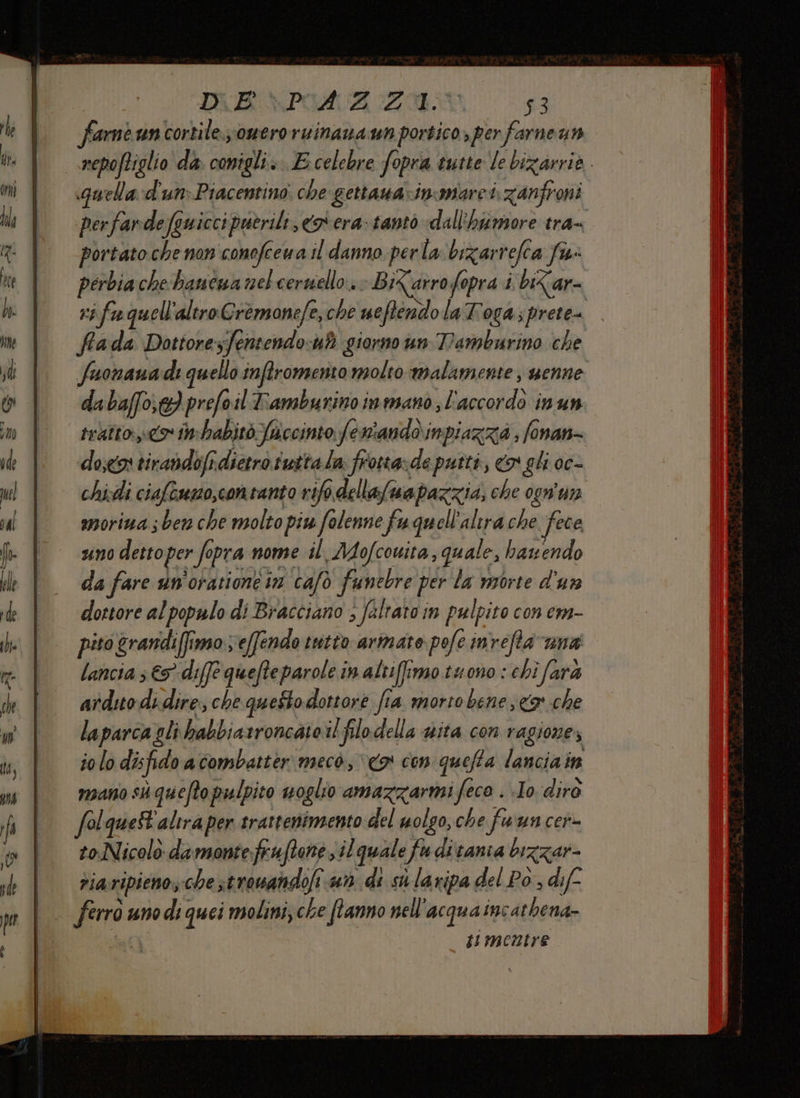 DE' PAZZI. 53
farne un cortile, ouero ruinaua un portico, per farne un
repoſtiglio da conigli. E celebre ſopra tutte le bizarrie
quella d'un Piacentino che gettaua in mare i zanfroni
per far de ſguicci puerili, & era tanto dall'humore tra-
portato che non conoſceua il danno per la bizarreſca ſu-
perbia che haueua nel ceruello. Bizarro ſopra i bizar-
ri fu quell'altro Cremoneſe, che ueſtendo la Toga, prete-
ſta da Dottore, ſentendo un giorno un Tamburino che
ſuonaua di quello inſtromento molto malamente, uenne
da baſſo, & preſo il Tamburino in mano, l'accordò in un
tratto, & in habitò ſuccinto ſen'andò in piazza, ſonan-
do, & tirandoſi dietro tutta la frotta de putti, & gli oc-
chi di ciaſcuno, con tanto riſo della ſua pazzia, che ogn'un
moriua; ben che molto piu ſolenne fu quell'altra che fece
uno detto per ſopra nome il Moſcouita, quale, hauendo
da fare un'oratione in caſò funebre per la morte d'un
dottore al populo di Bracciano, ſaltato in pulpito con em-
pito grandiſſimo, eſſendo tutto armato poſe in reſta una
lancia, & diſſe queſte parole in altiſſimo tuono: chi ſarà
ardito di dire, che queſto dottore ſia morto bene, & che
la parca gli habbia troncato il filo della uita con ragione,
io lo disfido a combatter meco, & con queſta lancia in
mano sù queſto pulpito uoglio amazzarmi ſeco. Io dirò
ſol queſt'altra per trattenimento del uolgo, che fu un cer-
to Nicolò da monte fruſtone, il quale fu di tanta bizzar-
ria ripieno, che, trouandoſi un dì sù la ripa del Pò, diſ-
ferrò uno di quei molini, che ſtanno nell'acqua incathena-
ti mentre